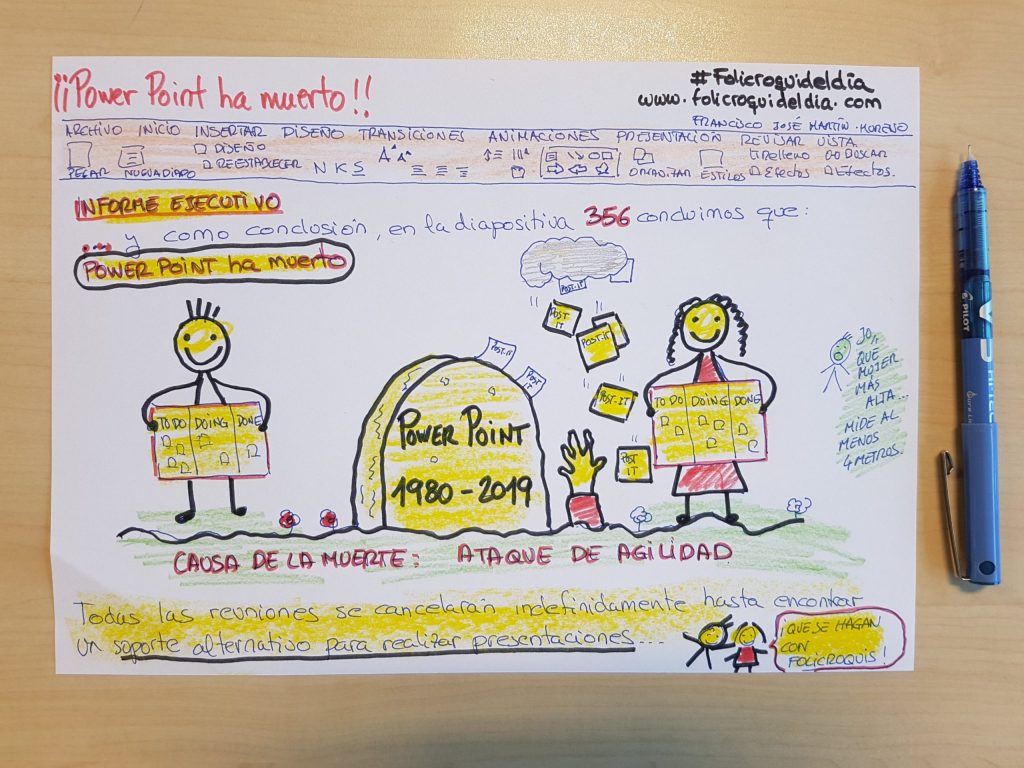 ¡¡Power Point ha muerto!!
#Folicroquideldía
www.folicroquideldia.com
FRANCISCO JOSÉ MARTÍN-MORENO
ARCHIVO INICIO INSERTAR DISEÑO TRANSICIONES ANIMACIONES PRESENTACIÓN REVISAR VISTA
DISEÑO
REESTABLECER
PEGAR NUEVA DIAPO
N K S
A A
ORGANIZAR ESTILOS
Relleno
Efectos
BUSCAR
Efectos.
INFORME EJECUTIVO
.... y como conclusión, en la diapositiva 356 concluimos que:
POWER POINT ha muerto
POST-IT
POST IT
POST-IT
POST-IT
POST IT
POST-IT
POST IT
TO DO DOING DONE
POWER POINT
1980 - 2019
TO DO DOING DONE
JO,
QUE
MUJER
MÁS
ALTA...
MIDE AL
MENOS
4 METROS.
CAUSA DE LA MUERTE: ATAQUE DE AGILIDAD
Todas las reuniones se cancelarán indefinidamente hasta encontrar
un soporte alternativo para realizar presentaciones...
¡QUE SE HAGAN
CON
FOLICROQUIS!
PILOT